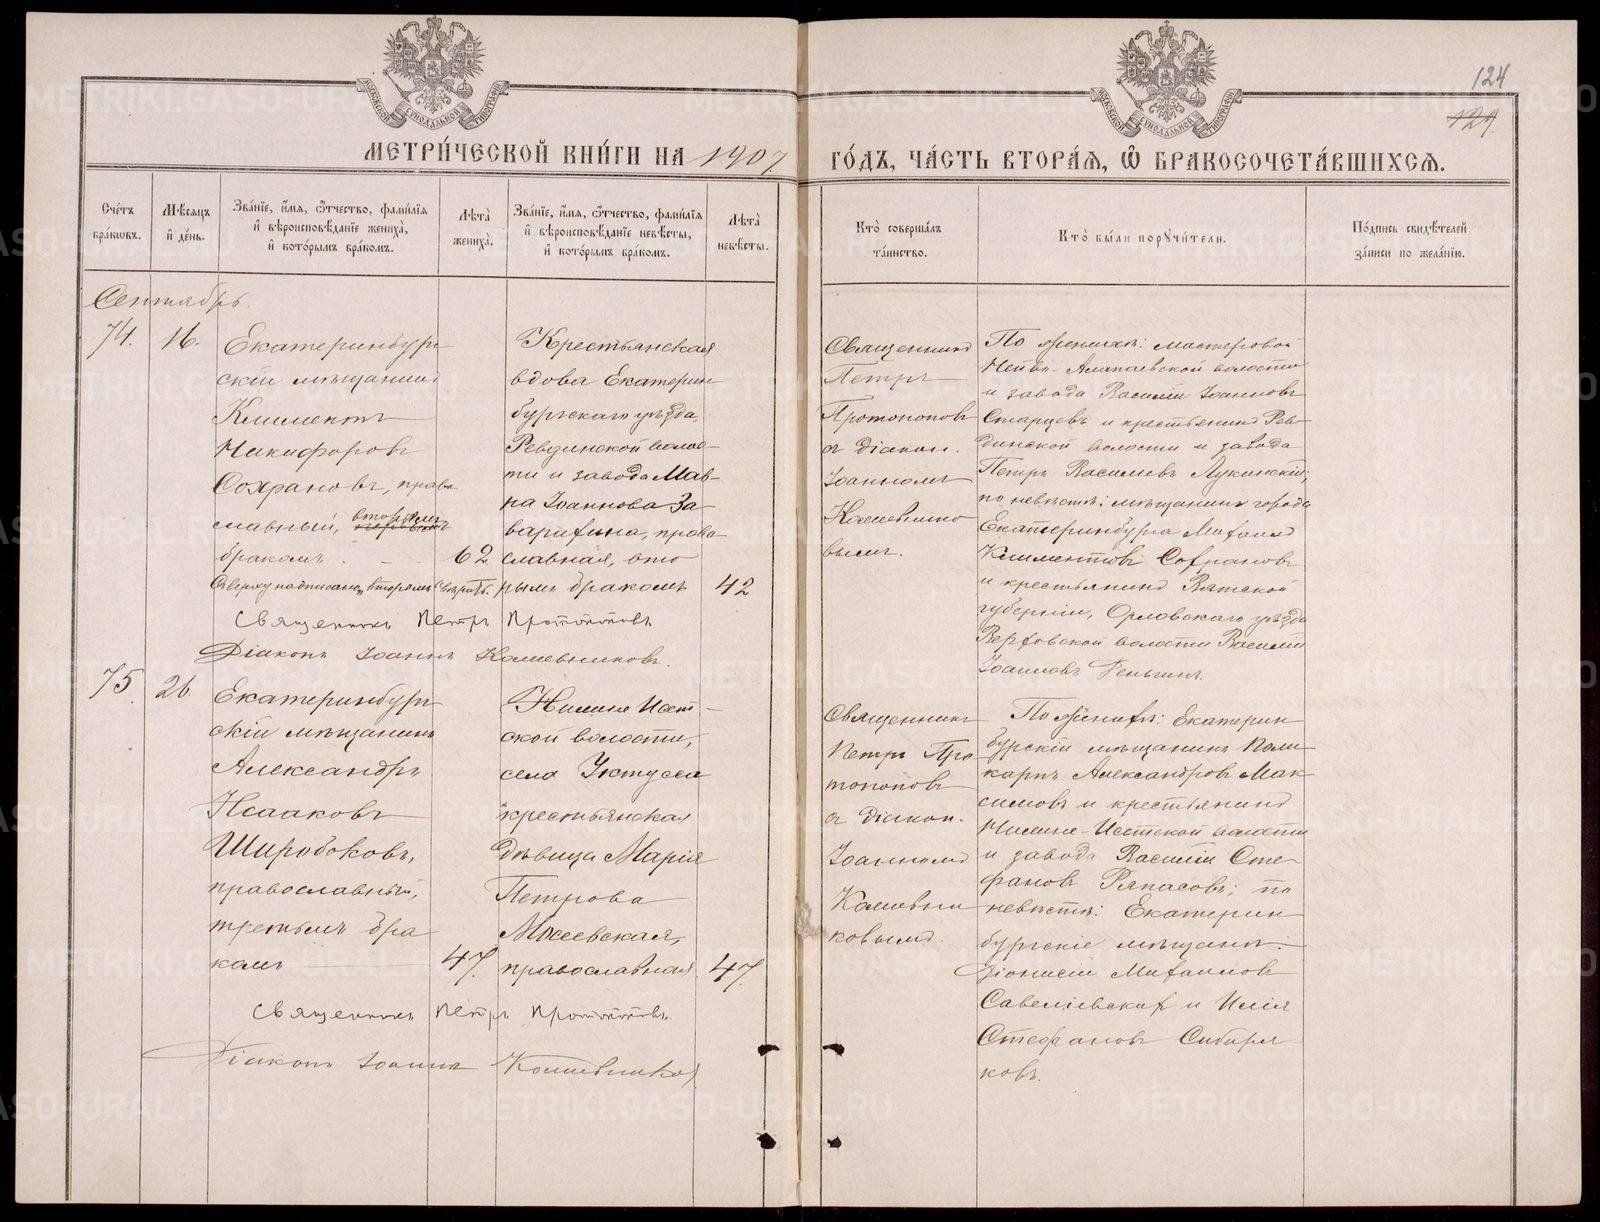 124
129.
МОСКОВСКОЙ СѴНОДАЛЬНОЙ ТИПОГРАФІИ
МОСКОВСКОЙ СѴНОДАЛЬНОЙ ТИПОГРАФІИ
МЕТРИ́ЧЕСКОЙ КНИ́ГИ НА 1907 ГО́ДЪ, ЧА́СТЬ ВТОРА́Я, Ѡ БРАКОСОЧЕТА́ВШИХСЯ.
Сче́тъ бра́кѡвъ.
Мѣ́сяцъ и́ де́нь.
Зва́нїе, и́мя, ѻ́тчество, фами́лїя и҆ вѣроисповѣ́данїе жениха̀, и҆ кото́рымъ бра́комъ.
Лѣта̀ жениха̀.
Зва́нїе, и́мя, ѻ́тчество, фами́лїя и҆ вѣроисповѣ́данїе невѣ́сты, и҆ кото́рымъ бра́комъ.
Лѣта̀ невѣ́сты.
Кто̀ соверша́лъ та́инство.
Кто̀ бы́ли порꙋчи́тели.
По́дпись свидѣ́телей за́писи по жела́нїю.
Сентябрь.
74.
16.
Екатеринбург
скій мѣщанинъ
Климентъ
Никифоровъ
Сохрановъ, право
славный, вторымъ
бракомъ
62
Сверху надписано „вторымъ“ вѣрить.
Крестьянская
вдова Екатерин
бургскаго уѣзда,
Ревдинской волос-
ти и завода Мав-
ра Іоаннова За
варахина, право
славная, вто
рымъ бракомъ
42
Священникъ
Петръ
Протопоповъ
съ діакон.
Іоанномъ
Кошевнико
вымъ.
По женихѣ: мастеровой
Нейво-Алапаевской волости
и завода Василій Іоанновъ
Старцевъ и крестьянинъ Рев
динской волости и завода
Петръ Василіевъ Лукинскій;
по невѣстѣ: мѣщанинъ города
Екатеринбурга Михаилъ
Климентовъ Сохрановъ
и крестьянинъ Вятской
губерніи, Орловскаго уѣзда
Верховской волости Василій
Іоанновъ
Священникъ Петръ Протопоповъ
Діаконъ Іоаннъ Кошевниковъ.
75.
26
Екатеринбург
скій мѣщанинъ
Александръ
Исааковъ
Широбоковъ,
православный,
третьимъ бра
комъ
47.
Нижне Исет-
ской волости,
села Уктусса
крестьянская
дѣвица Марія
Петрова
православная
47.
Священникъ
Петръ Про
топоповъ
съ діакон.
Іоанномъ
Кошевни
ковымъ.
По женихѣ: Екатерин
бургскій мѣщанинъ Поли
карпъ Александровъ Мак
симовъ и крестьянинъ
Нижне-Исетской волости
и завода Василій Сте-
фановъ Ряпасовъ; по
невѣстѣ: Екатерин
бургскіе мѣщане:
Діонисій Михаиловъ
Савеліевскій и Илія
Стефановъ Сибиря
ковъ.
Священникъ Петръ Протопоповъ
Діаконъ Іоаннъ Кошевниковъ
METRIKI.GASO-URAL.RU